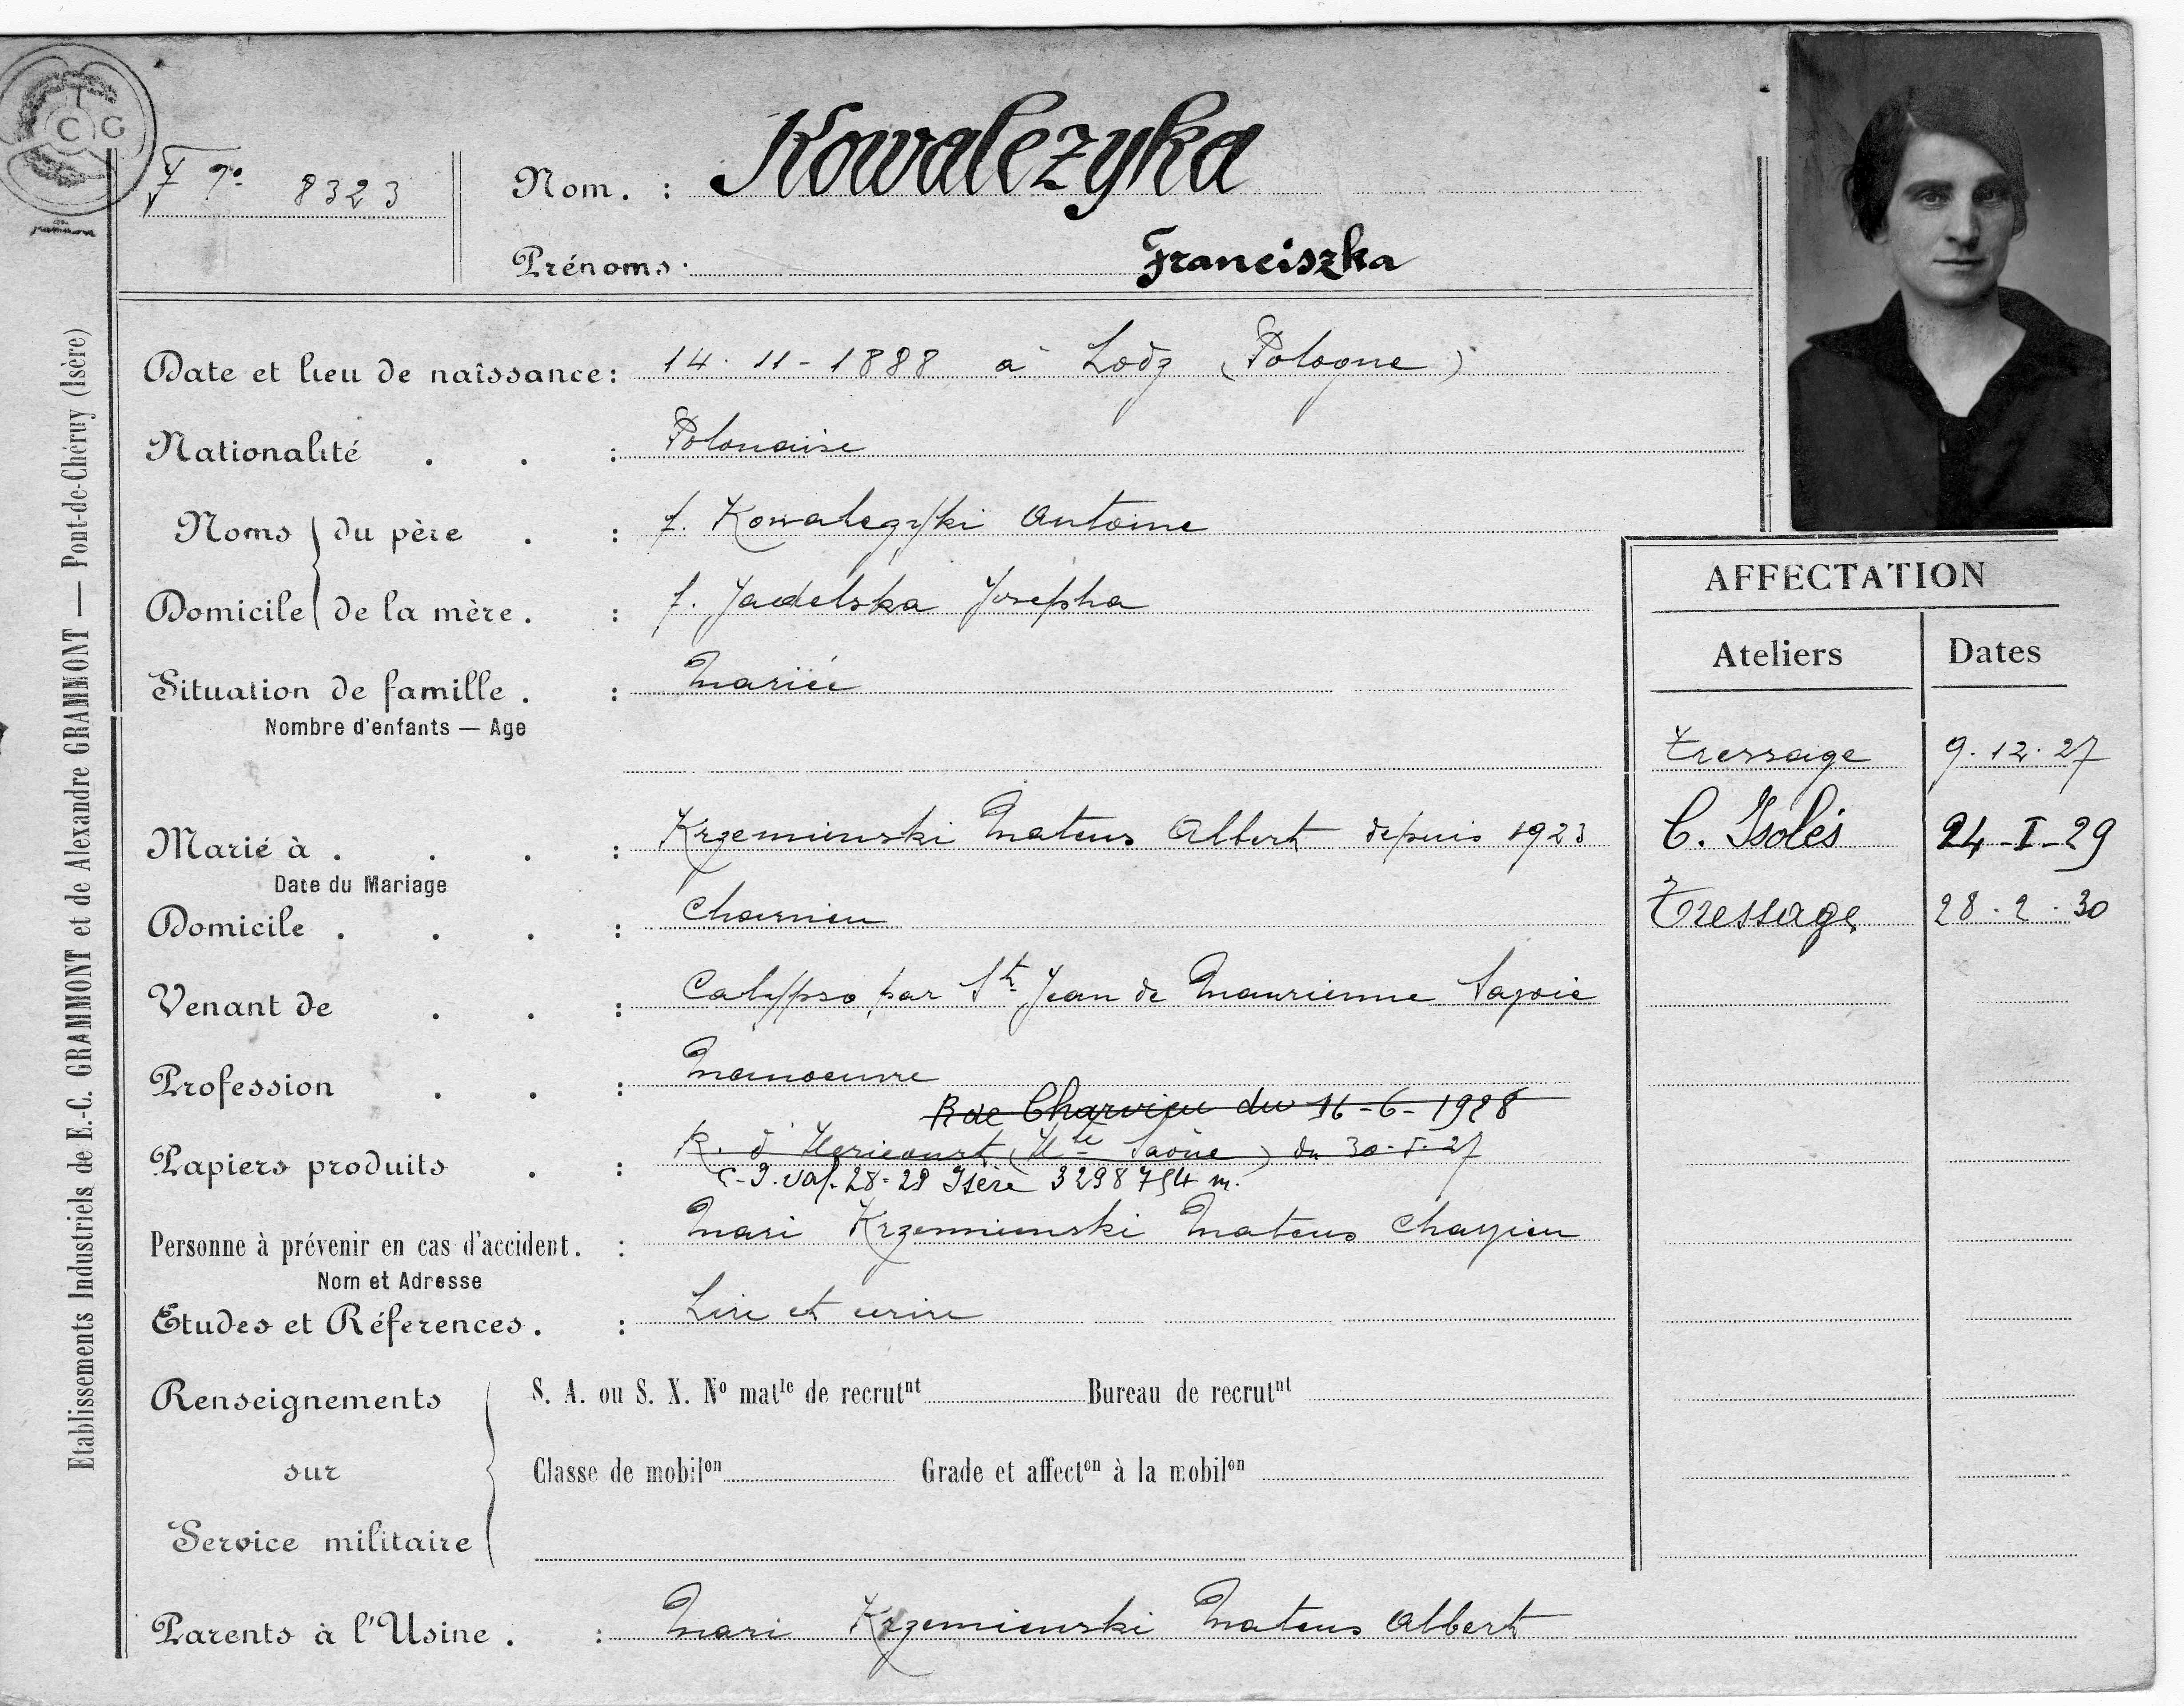 C G
F 7° 8323
Nom. : Kowalezyka
Prénoms. Franciszka
Date et lieu de naissance: 14.11-1888 à Lodz (Pologne)
Nationalité . . : Polonaise
Noms du père . : f. Kowalezyki Antoine
Domicile de la mère. : f. Jadelska Josepha
Situation de famille. : Mariée
Nombre d'enfants — Age
Marié à . . . : Krzemienski Mateus Albert depuis 1923
Date du Mariage
Domicile . . . : Charvieu
Venant de . . : Calypso par St Jean de Maurienne Savoie
Profession . . : Manoeuvre
Rec Charvieu du 16-6-1928
Papiers produits . : R. d'Hericourt (Hte Saône) du 30-5-27
C-I. val. 28-29 Isère 3298754 m.
Personne à prévenir en cas d'accident. : Mari Krzemienski Mateus Charvieu
Nom et Adresse
Etudes et Réferences. : Lire et ecrire
Renseignements sur Service militaire
S. A. ou S. X. No matle de recrutnt Bureau de recrutnt
Classe de mobilon Grade et affecton à la mobilon
Parents à l'Usine. : Mari Krzemienski Mateus Albert
AFFECTATION
Ateliers Dates
Tressage 9.12.27
C. Isolés 24-I-29
Tressage 28.2.30
Etablissements Industriels de E.-C. GRAMMONT et de Alexandre GRAMMONT — Pont-de-Chéruy (Isère)